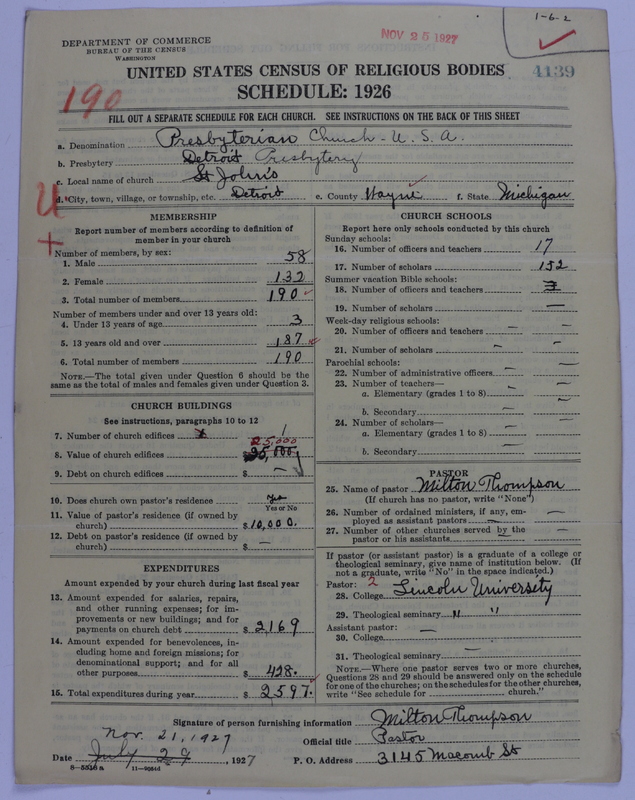 1-6-2
NOV 25 1927
DEPARTMENT OF COMMERCE
BUREAU OF THE CENSUS
WASHINGTON
UNITED STATES CENSUS OF RELIGIOUS BODIES
4139
SCHEDULE: 1926
190
FILL OUT A SEPARATE SCHEDULE FOR EACH CHURCH. SEE INSTRUCTIONS ON THE BACK OF THIS SHEET
a. Denomination Presbyterian Church - U. S. A.
b. Presbytery Detroit Presbytery
c. Local name of church St John's
d. *City, town, village, or township, etc. Detroit e. County Wayne f. State Michigan
MEMBERSHIP
Report number of members according to definition of
member in your church
Number of members, by sex:
1. Male 58
2. Female 132
3. Total number of members 190
Number of members under and over 13 years old:
4. Under 13 years of age 3
5. 13 years old and over 187
6. Total number of members 190
NOTE.—The total given under Question 6 should be
same as the total of males and females given under Question 3.
CHURCH BUILDINGS
See instructions, paragraphs 10 to 12
7. Number of church edifices 1
25,000
8. Value of church edifices $
9. Debt on church edifices $ —
10. Does church own pastor's residence yes
Yes or No
11. Value of pastor's residence (if owned by
church) $ 10,000.
12. Debt on pastor's residence (if owned by
church) $ —
EXPENDITURES
Amount expended by your church during last fiscal year
13. Amount expended for salaries, repairs,
and other running expenses; for im-
provements or new buildings; and for
payments on church debt $ 2169
14. Amount expended for benevolences, in-
cluding home and foreign missions; for
denominational support; and for all
other purposes $ 428.
15. Total expenditures during year $ 2597.
CHURCH SCHOOLS
Report here only schools conducted by this church
Sunday schools:
16. Number of officers and teachers 17
17. Number of scholars 152
Summer vacation Bible schools:
18. Number of officers and teachers
19. Number of scholars —
Week-day religious schools:
20. Number of officers and teachers —
21. Number of scholars —
Parochial schools:
22. Number of administrative officers —
23. Number of teachers—
a. Elementary (grades 1 to 8) —
b. Secondary —
24. Number of scholars—
a. Elementary (grades 1 to 8) —
b. Secondary —
PASTOR
25. Name of pastor Milton Thompson
(If church has no pastor, write "None")
26. Number of ordained ministers, if any, em-
ployed as assistant pastors —
27. Number of other churches served by the
pastor or his assistants —
If pastor (or assistant pastor) is a graduate of a college or
theological seminary, give name of institution below. (If
not a graduate, write "No" in the space indicated.)
Pastor: 2
28. College Lincoln University
29. Theological seminary " "
Assistant pastor: —
30. College
31. Theological seminary —
NOTE.—Where one pastor serves two or more churches,
Questions 28 and 29 should be answered only on the schedule
for one of the churches; on the schedules for the other churches,
write "See schedule for church."
Signature of person furnishing information Milton Thompson
Nov. 21, 1927
Official title Pastor
Date July 29, 1927 P. O. Address 3145 Macomb St